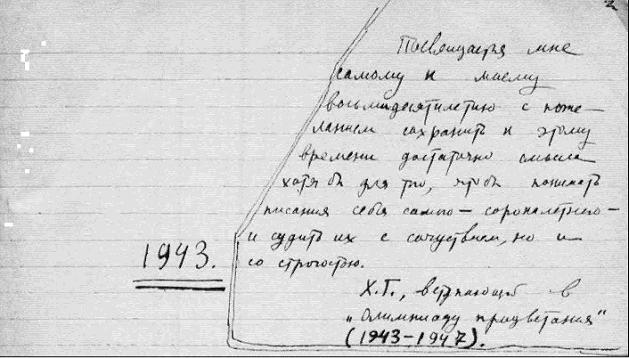 2
Посвящается мне
самому к моему
восьмидесятилетию с поже-
ланием сохранить к этому
времени достаточно смысла
хотя бы для того, чтобы понимать
писания себя самого — сорокалетнего —
и судить их с сочуствием, но и
со строгостью.
1943.
Х.Г., вступающий в
„Олимпиаду процветания"
(1943-1947).